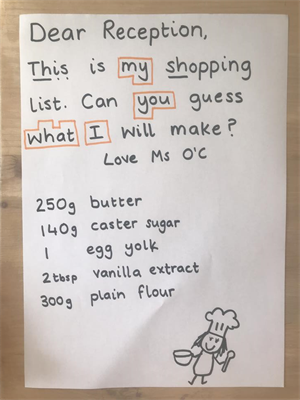 Dear Reception,
This is my shopping
list. Can you guess
what I will make?
Love Ms O'C
250g butter
140g caster sugar
1 egg yolk
2tbsp vanilla extract
300g plain flour